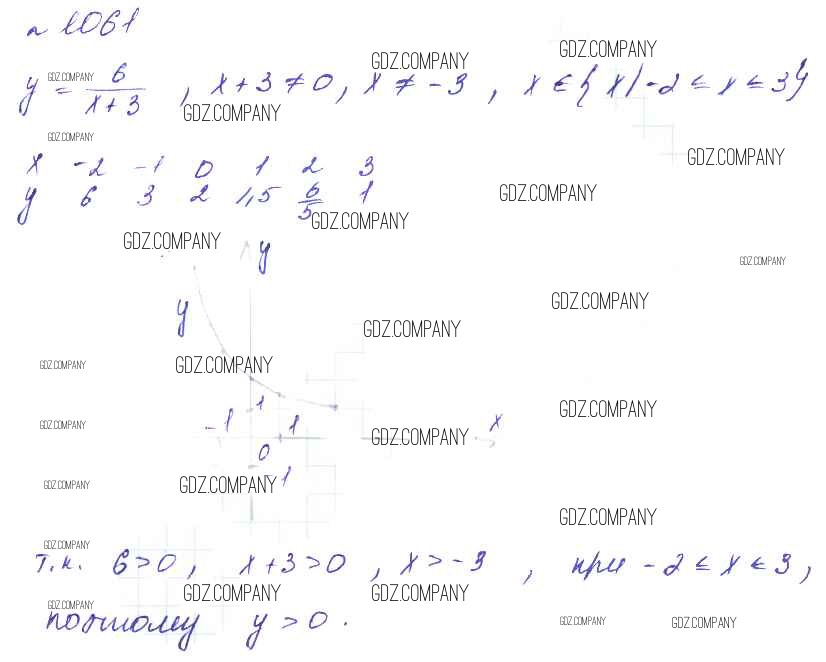 № 1061
GDZ.COMPANY GDZ.COMPANY
y = 6/(x+3) , x+3 ≠ 0, x ≠ -3 , x ∈ { x | -2 ≤ x ≤ 3}
GDZ.COMPANY GDZ.COMPANY
GDZ.COMPANY GDZ.COMPANY
x -2 -1 0 1 2 3
GDZ.COMPANY
y 6 3 2 1,5 6/5 1
GDZ.COMPANY
GDZ.COMPANY y GDZ.COMPANY
GDZ.COMPANY
y GDZ.COMPANY
GDZ.COMPANY GDZ.COMPANY
-1 1 1 GDZ.COMPANY
GDZ.COMPANY GDZ.COMPANY x
0
GDZ.COMPANY GDZ.COMPANY -1
GDZ.COMPANY
GDZ.COMPANY
т.к. 6>0, x+3>0 , x>-3 , при -2 ≤ x ≤ 3,
GDZ.COMPANY GDZ.COMPANY GDZ.COMPANY
поэтому y>0.
GDZ.COMPANY GDZ.COMPANY